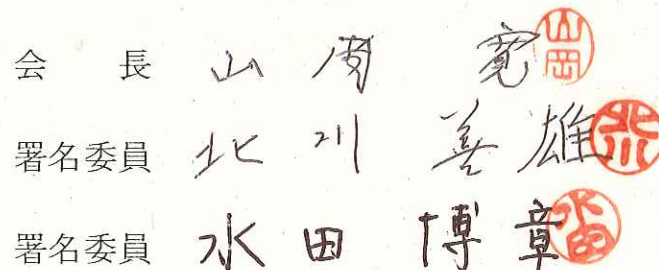 会長 山岡 寛 山岡
署名委員 北川 善雄 北川
署名委員 水田 博章 水田